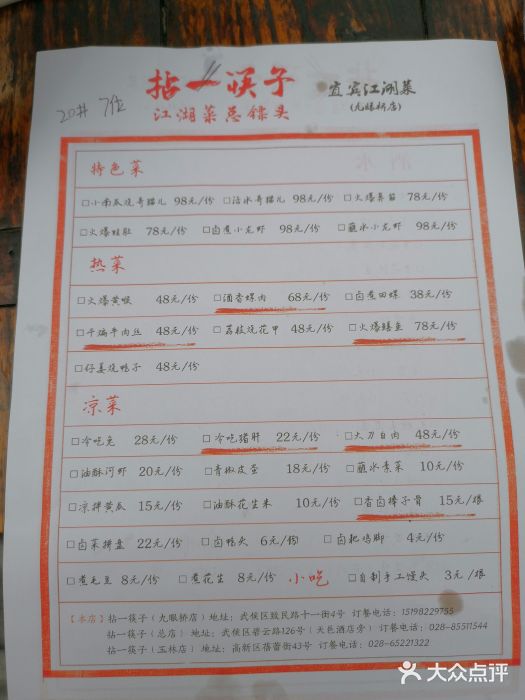 拈一筷子 宜宾江湖菜
20# 7位 江湖菜总镖头 (九眼桥店)
特色菜
□小南瓜烧哥猫儿 98元/份 □活水哥猫儿 98元/份 □火爆鼻筋 78元/份
□火爆蛙肚 78元/份 □卤煮小龙虾 98元/份 □蘸水小龙虾 98元/份
热菜
□火爆黄喉 48元/份 □酒香螺肉 68元/份 □卤煮田螺 38元/份
□干煸牛肉丝 48元/份 □荔枝烧花甲 48元/份 □火爆鳝鱼 78元/份
□仔姜烧鸭子 48元/份
凉菜
□冷吃兔 28元/份 □冷吃猪肝 22元/份 □大刀白肉 48元/份
□油酥河虾 20元/份 □青椒皮蛋 18元/份 □蘸水素菜 10元/份
□凉拌黄瓜 15元/份 □油酥花生米 10元/份 □香卤棒子骨 15元/根
□卤菜拼盘 22元/份 □卤鸭头 6元/份 □卤粑鸡脚 4元/份
□煮毛豆 8元/份 □煮花生 8元/份 小吃 □自制手工馒头 3元/根
【本店】 拈一筷子（九眼桥店）地址：武侯区致民路十一街4号 订餐电话：15198229755
拈一筷子（总店）地址：武侯区碧云路126号（天邑酒店旁）订餐电话：028-85511544
拈一筷子（玉林店）地址：高新区蓓蕾街43号 订餐电话：028-65221322
大众点评